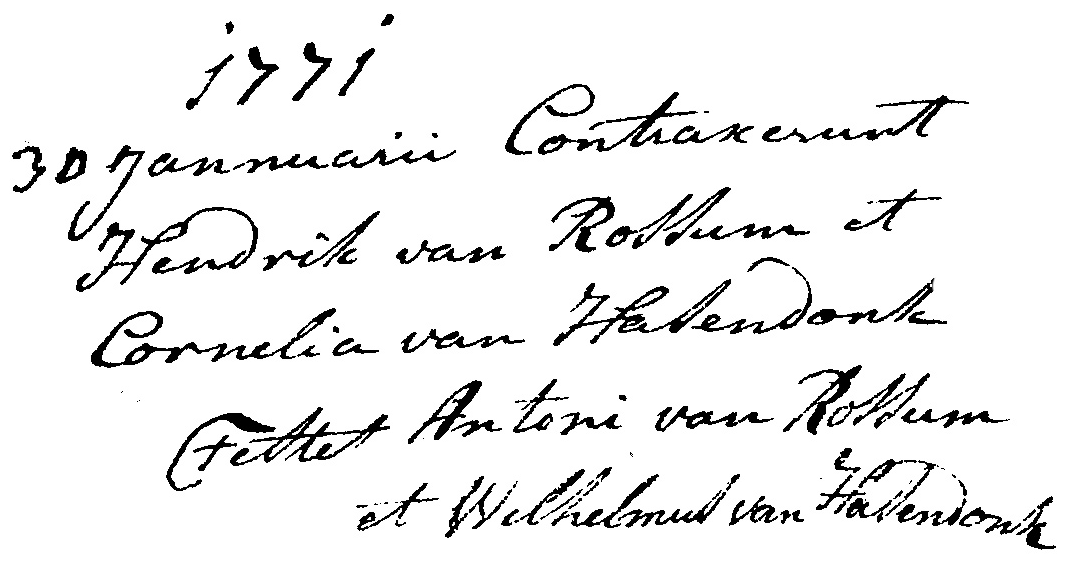 1771
30 Jannuarii Contraxerunt
Hendrik van Rossum et
Cornelia van Hasendonk
Testes Antoni van Rossum
et Wilhelmus van Hasendonk